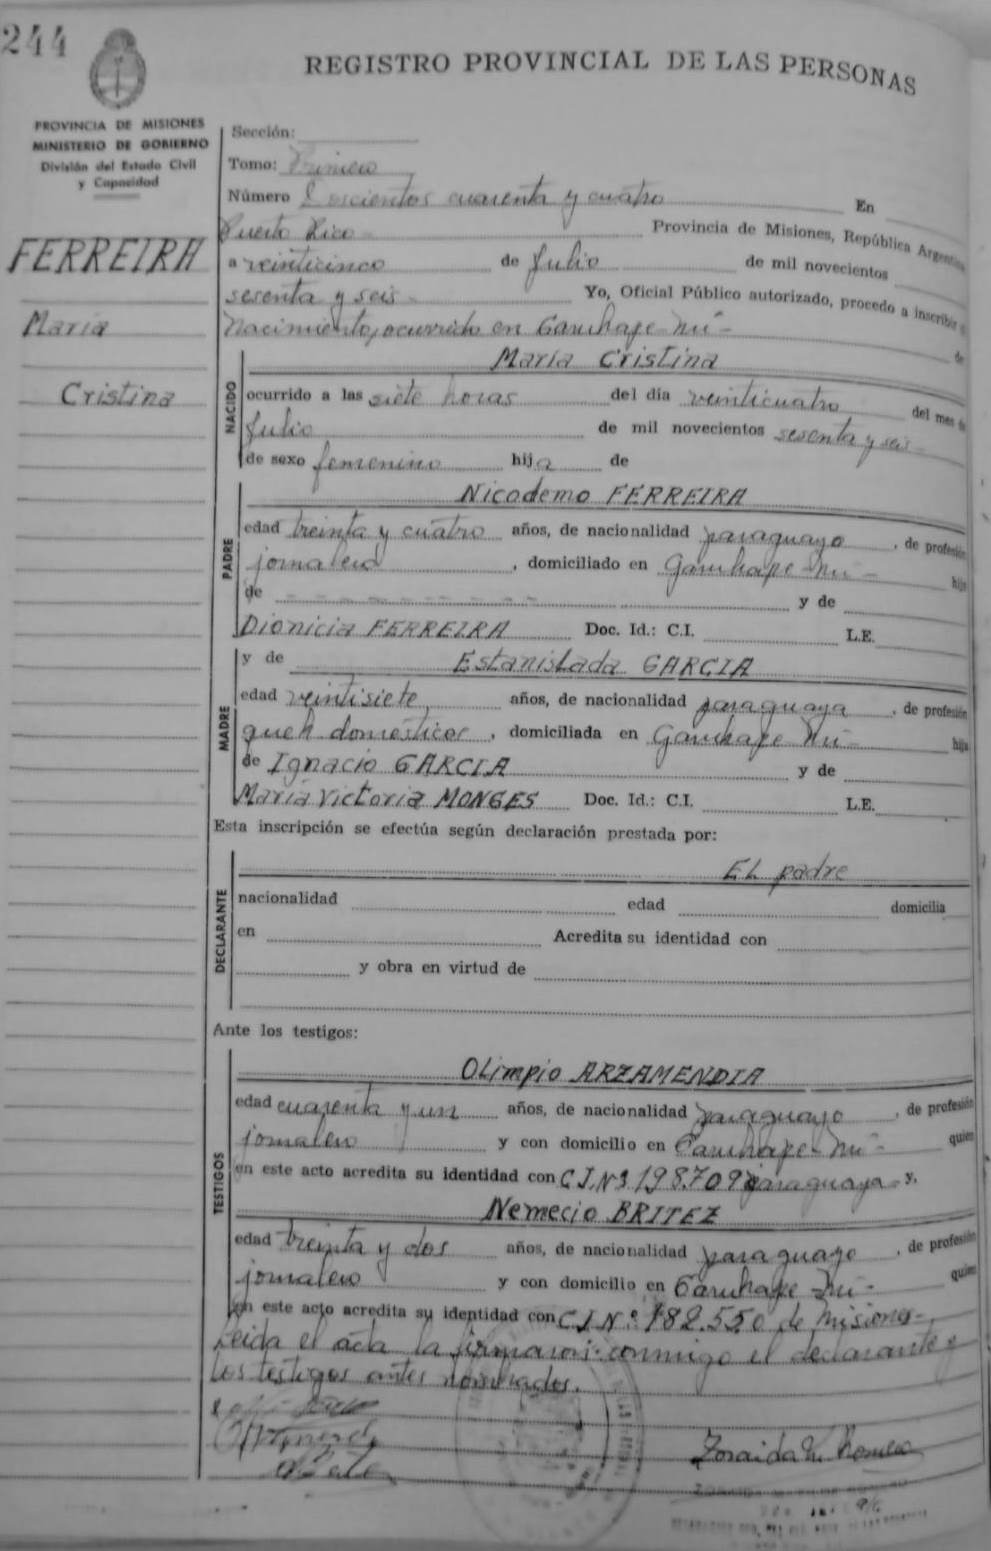 244
REGISTRO PROVINCIAL DE LAS PERSONAS
PROVINCIA DE MISIONES
MINISTERIO DE GOBIERNO
División del Estado Civil
y Capacidad
FERREIRA
María
Cristina
Sección:
Tomo: Primero
Número Doscientos cuarenta y cuatro En
Puerto Rico Provincia de Misiones, República Argentina
a veinticinco de Julio de mil novecientos
sesenta y seis Yo, Oficial Público autorizado, procedo a inscribir
Nacimiento, ocurrido en Garuhape-Mi- de
NACIDO
María Cristina
ocurrido a las siete horas del día veinticuatro del mes de
Julio de mil novecientos sesenta y seis
de sexo femenino hija de
PADRE
Nicodemo FERREIRA
edad treinta y cuatro años, de nacionalidad paraguayo, de profesión
jornalero, domiciliado en Garuhape-Mi- hijo
de y de
Dionicia FERREIRA Doc. Id.: C.I. L.E.
MADRE
y de Estanislada GARCIA
edad veintisiete años, de nacionalidad paraguaya, de profesión
queh domesticos, domiciliada en Garuhape Mi- hija
de Ignacio GARCIA y de
María Victoria MONGES Doc. Id.: C.I. L.E.
Esta inscripción se efectúa según declaración prestada por:
DECLARANTE
EL padre
nacionalidad edad domicilia
en Acredita su identidad con
y obra en virtud de
Ante los testigos:
TESTIGOS
OLimpio ARZAMENDIA
edad cuarenta y un años, de nacionalidad paraguayo, de profesión
jornalero y con domicilio en Garuhape-Mi- quien
en este acto acredita su identidad con C.I.Nº 198.709 paraguaya y,
Nemecio BRITEZ
edad treinta y dos años, de nacionalidad paraguayo, de profesión
jornalero y con domicilio en Garuhape Mi- quien
en este acto acredita su identidad con C.I.Nº 182.550 de Misiones-
Leida el acta la firmaron conmigo el declarante y
los testigos antes nombrados.
Zoraida M. Romero